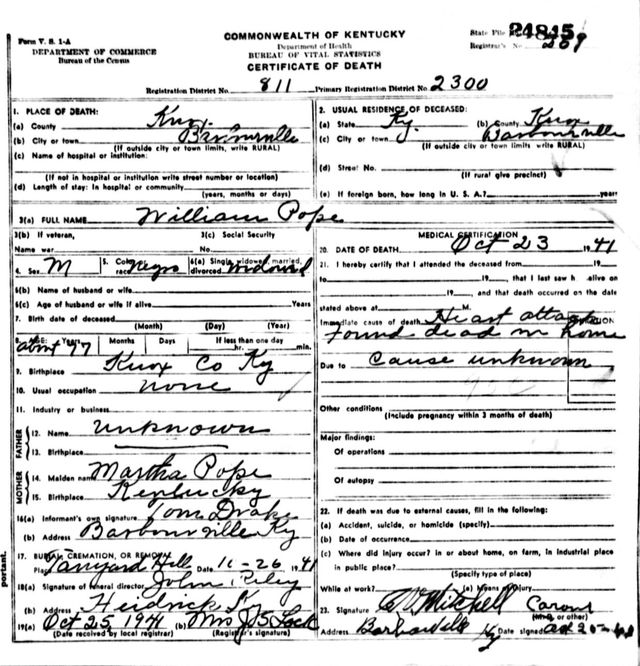 Form V. S. 1-A
DEPARTMENT OF COMMERCE
Bureau of the Census
COMMONWEALTH OF KENTUCKY
Department of Health
BUREAU OF VITAL STATISTICS
CERTIFICATE OF DEATH
State File No. 24845
Registrar's No. 209
Registration District No. 811 Primary Registration District No. 2300
1. PLACE OF DEATH:
(a) County Knox
(b) City or town Barbourville
(If outside city or town limits, write RURAL)
(c) Name of hospital or institution:
(If not in hospital or institution write street number or location)
(d) Length of stay: In hospital or community
(years, months or days)
2. USUAL RESIDENCE OF DECEASED:
(a) State Ky. (b) County Knox
(c) City or town Barbourville
(If outside city or town limits, write RURAL)
(d) Street No.
(If rural give precinct)
(e) If foreign born, how long in U. S. A.? years
3(a) FULL NAME William Pope
3(b) If veteran, Name war
3(c) Social Security No.
4. Sex M 5. Color race Negro 6(a) Single, widowed, married, divorced widowed
6(b) Name of husband or wife
6(c) Age of husband or wife if alive Years
7. Birth date of deceased
(Month) (Day) (Year)
8. AGE: Years Months Days If less than one day
about 77 hr. min.
9. Birthplace Knox Co Ky
10. Usual occupation none
11. Industry or business
FATHER
12. Name unknown
13. Birthplace
MOTHER
14. Maiden name Martha Pope
15. Birthplace Kentucky
16(a) Informant's own signature Tom Drake
(b) Address Barbourville Ky
17. BURIAL, CREMATION, OR REMOVAL
Place Tanyard Hill Date 10-26 1941
18(a) Signature of funeral director John Riley
(b) Address Heidrick Ky
19(a) Oct 25, 1941 (b) Mrs J B Lock
(Date received by local registrar) (Registrar's signature)
MEDICAL CERTIFICATION
20. DATE OF DEATH Oct 23 1941
21. I hereby certify that I attended the deceased from 19
to 19 , that I last saw h alive on
19 , and that death occurred on the date
stated above at M.
Immediate cause of death Heart attack
Found dead in home
Due to cause unknown
Other conditions
(Include pregnancy within 3 months of death)
Major findings:
Of operations
Of autopsy
22. If death was due to external causes, fill in the following:
(a) Accident, suicide, or homicide (specify)
(b) Date of occurrence
(c) Where did injury occur? in or about home, on farm, in industrial place
in public place?
(Specify type of place)
While at work? (e) Means of injury
23. Signature Mitchell Coroner
(M.D. or other)
Address Barbourville Ky Date signed
portant.